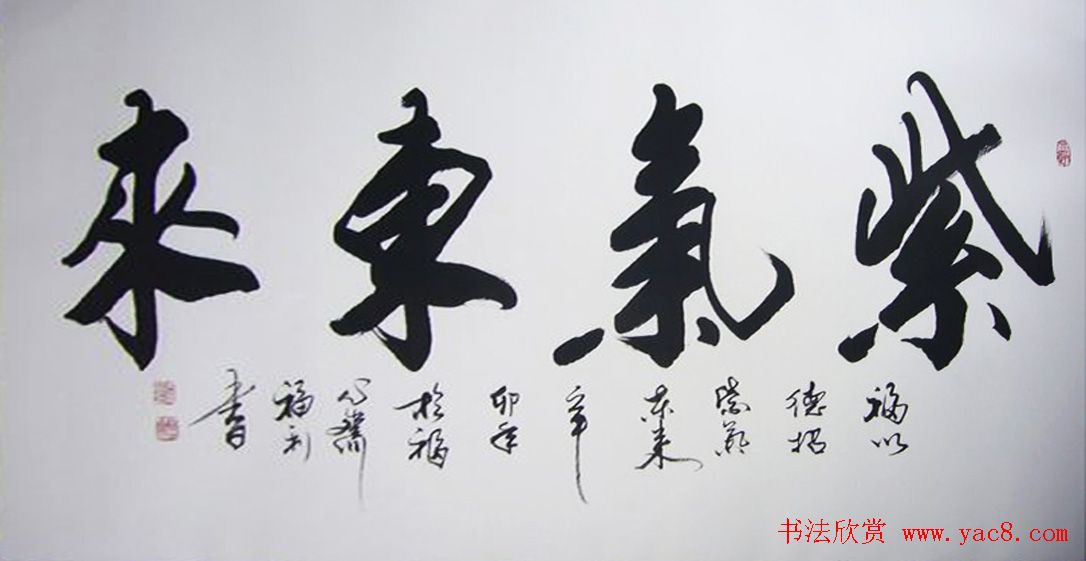 紫氣東來
福以德招紫氣东来辛卯年於福心齋福利書
书法欣赏 www.yac8.com